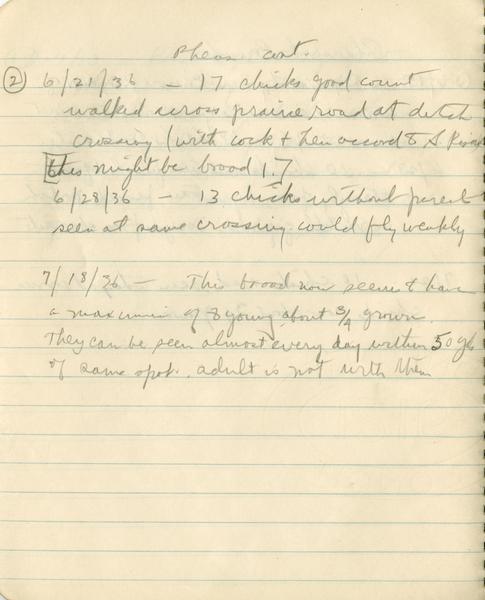 Pheas cont.
② 6/21/36 — 17 chicks good count
walked across prairie road at ditch
crossing (with cock + hen accord to S
[this might be brood 1.]
6/28/36 — 13 chicks without parent
seen at same crossing could fly weakly
7/18/36 — This brood now seems to have
a maximum of 8 young, about 3/4 grown.
They can be seen almost every day within 50 yds
of same spot. adult is not with them